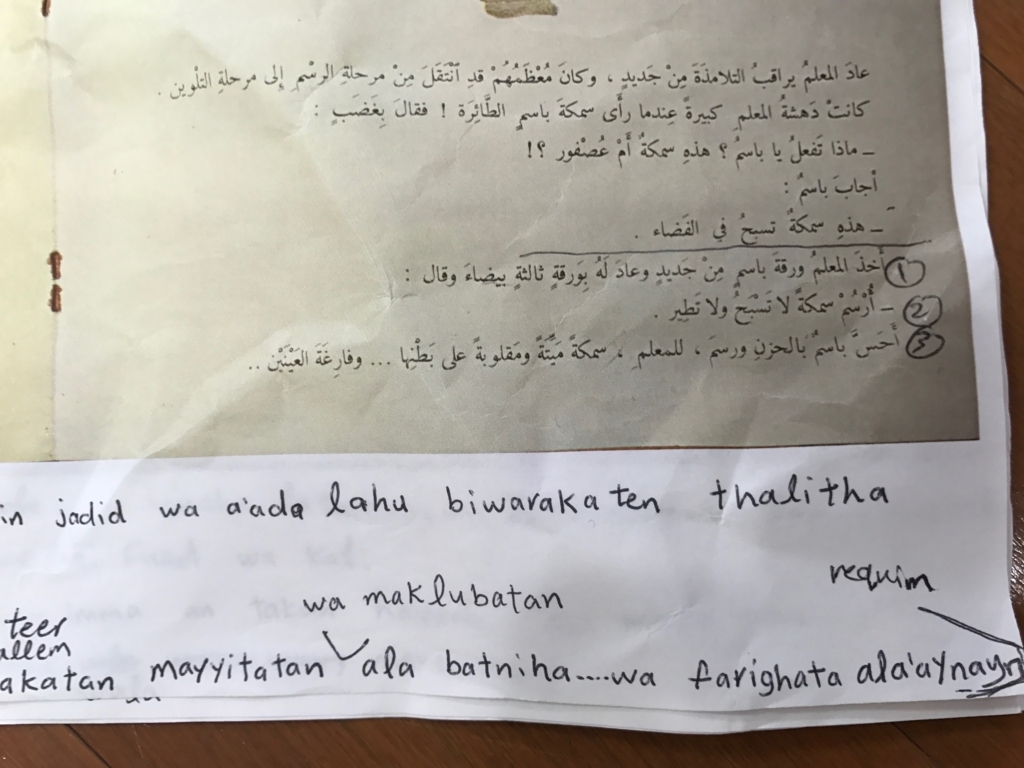 عادَ المعلمُ يراقبُ التلامذَةَ مِنْ جَديدٍ ، وكانَ مُعْظَمُهُمْ قدِ ٱنْتَقَلَ مِنْ مرحلةِ الرسْمِ إلى مرحلةِ التلْوين .
كانتْ دَهشةُ المعلمِ كبيرةً عِندما رأى سمكةَ باسمٍ الطَّائِرَة ! فقالَ بِغضَبٍ :
ـ ماذا تَفعلُ يا باسمُ ؟ هذهِ سمكةٌ أمْ عُصْفور ؟!
أجابَ باسمٌ :
ـ هذهِ سمكةٌ تسبحُ في الفَضاء .
١ أخَذَ المعلمُ ورقةَ باسمٍ مِنْ جديدٍ وعادَ لَهُ بِوَرقةٍ ثالثةٍ بيضاءَ وقال :
2 ـ أُرْسُمْ سمكةً لا تَسْبَحُ ولا تَطِير .
3 أَحَسَّ باسمٌ بالحزنِ ورسمَ ، للمعلمِ ، سمكةً مَيِّتَةً ومَقلوبةً على بَطْنِها ... وفارِغَةَ العَيْنَيْن ..
in jadid wa a'ada lahu biwarakaten thalitha
requim
wa maklubatan
teer
allem
akatan mayyitatan ala batniha....wa farighata ala'aynayn